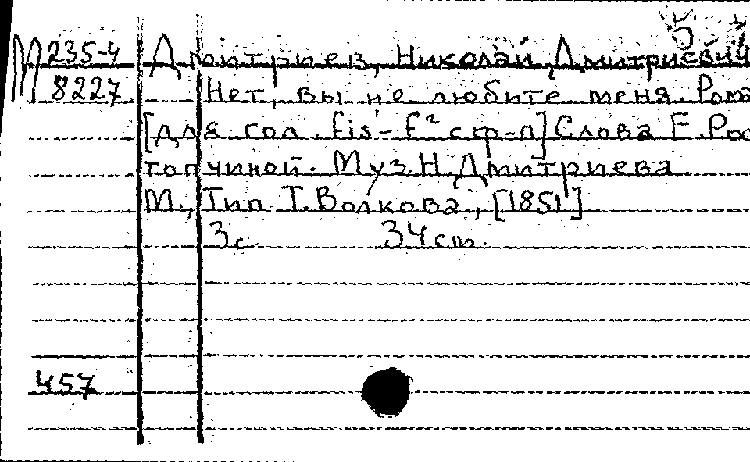 М 235-4 Дмитриев, Николай Дмитриевич
8227 Нет, вы не любите меня. Рома
[для гол. fis-f² с ф-п] Слова Е. Рос
топчиной. Муз. Н. Дмитриева
М., Тип. Т. Волкова, [1851]
3с. 34 cm.
457